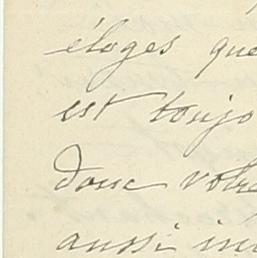 éloges que
est toujo
donc votre
aussi in